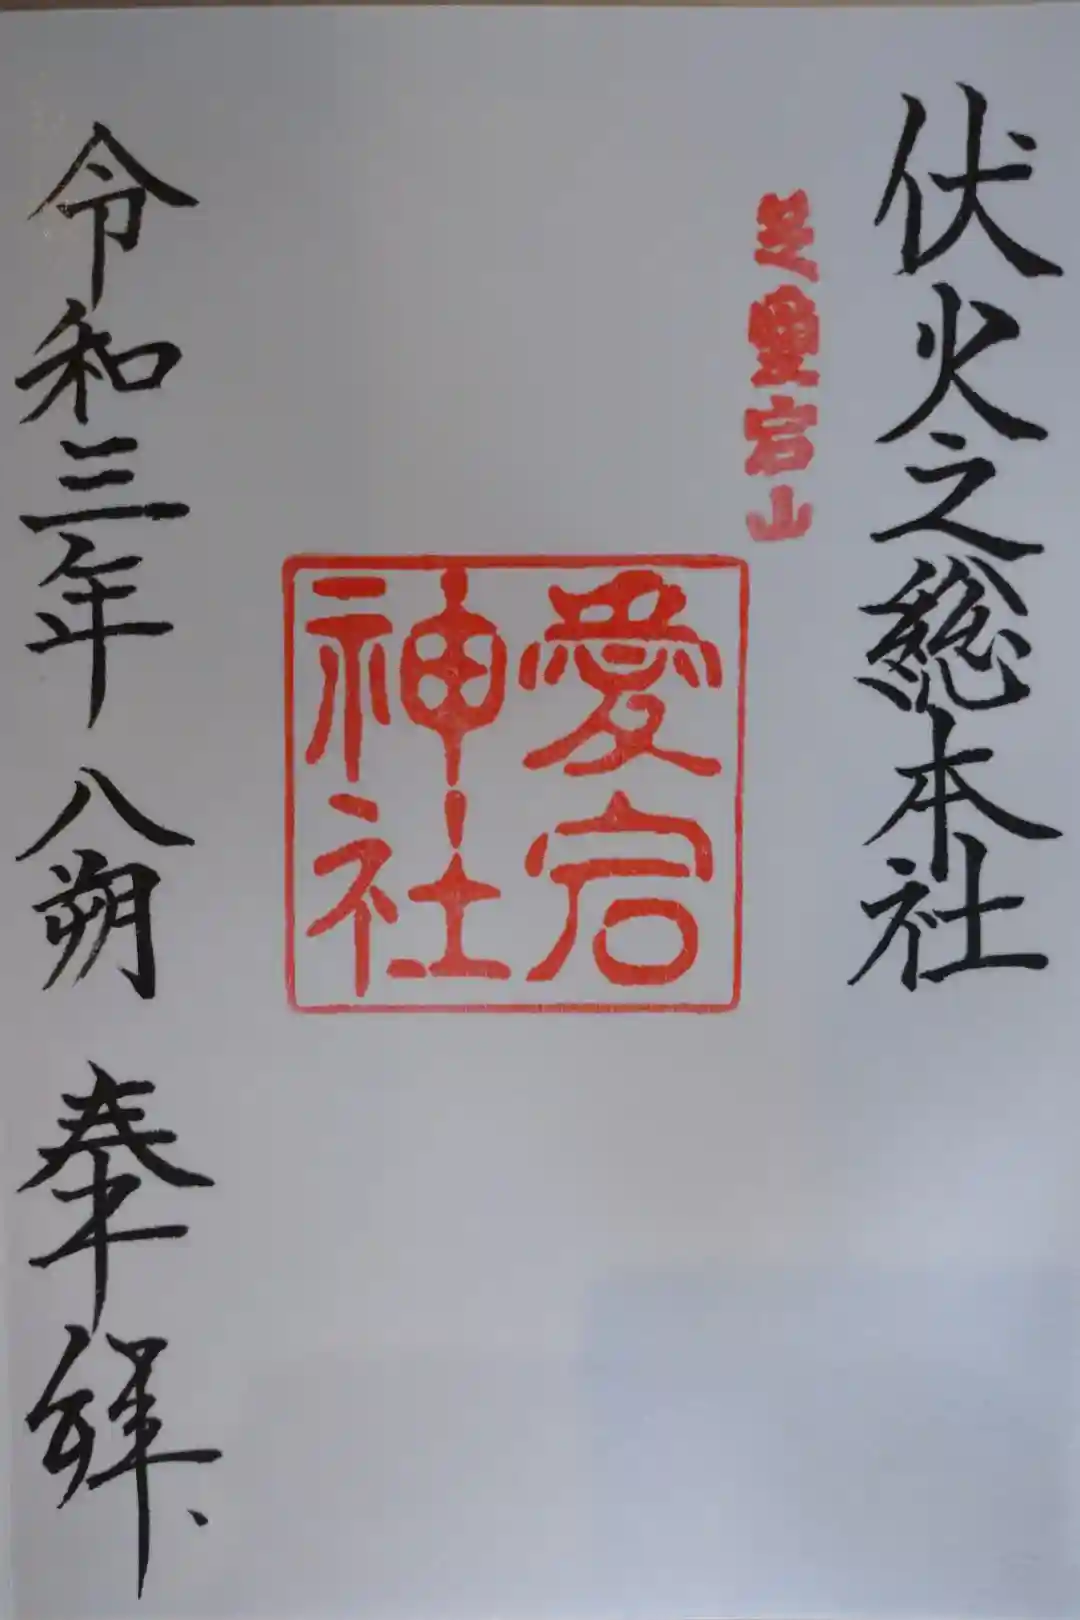 伏火之総本社
芝愛宕山
愛宕
神社
令和三年 八朔 奉拝